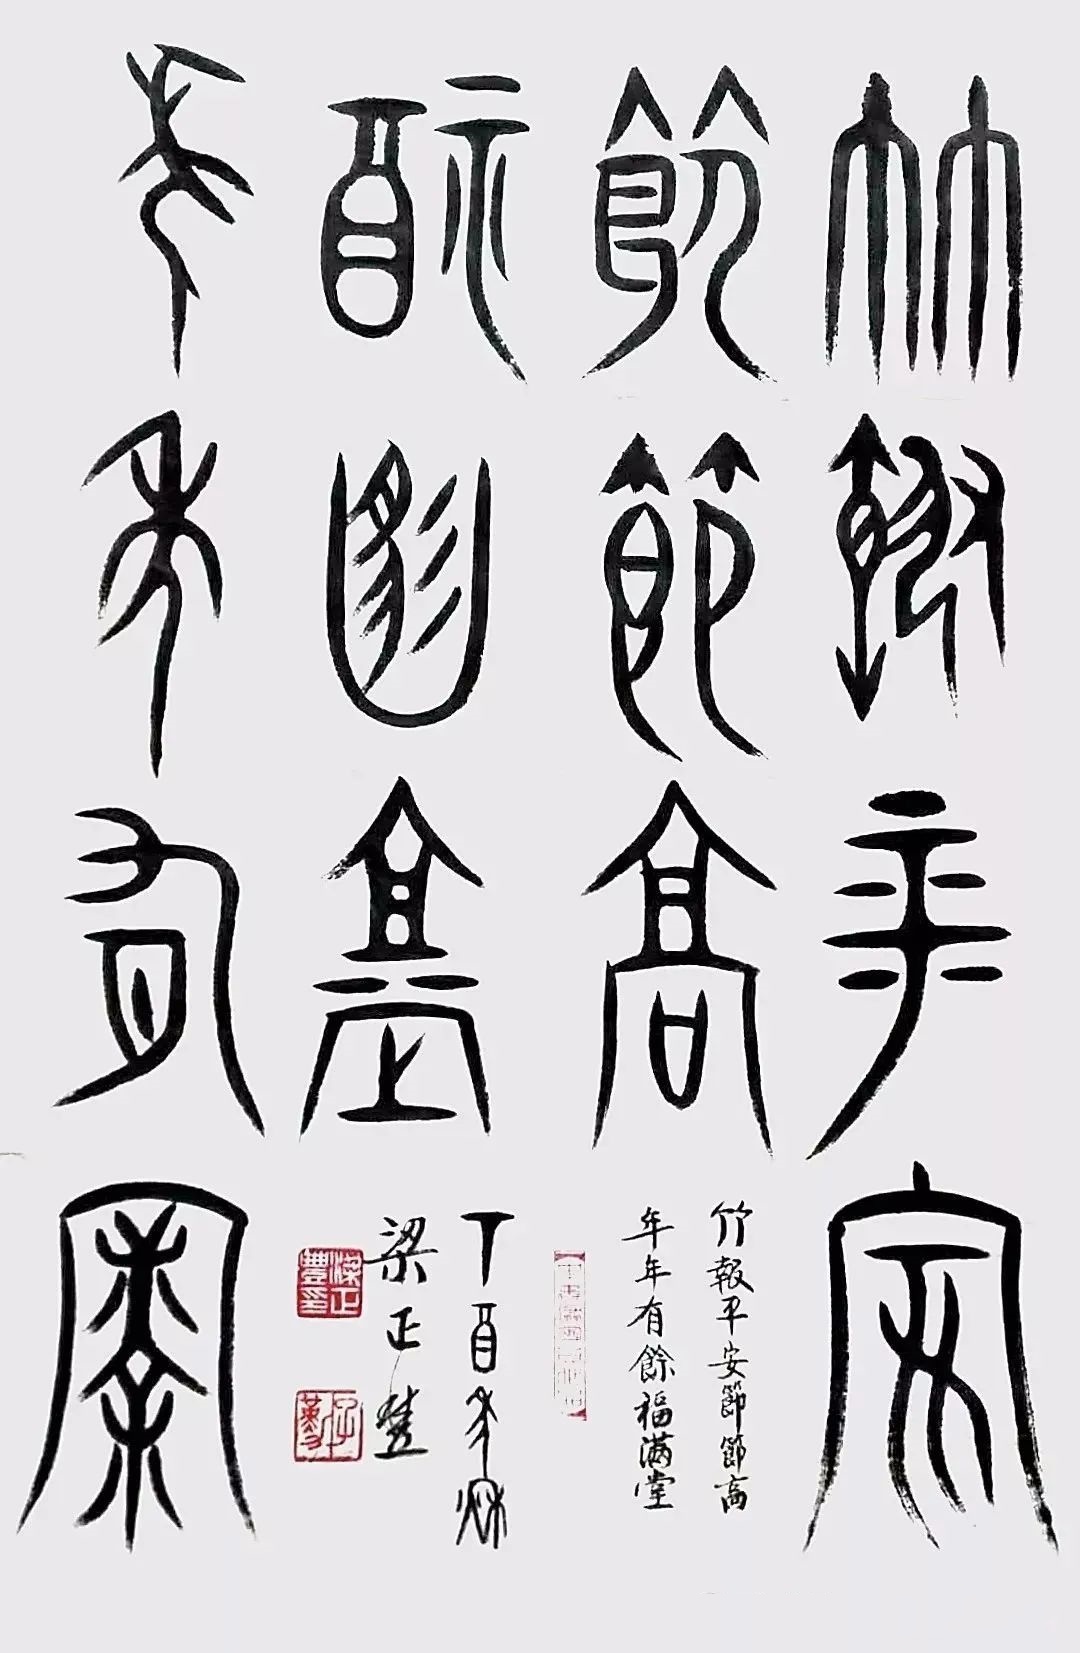 竹報平安
節節高
福滿堂
年年有餘
竹報平安節節高
年年有餘福滿堂
丁酉年秋
梁正豊
梁正豊印